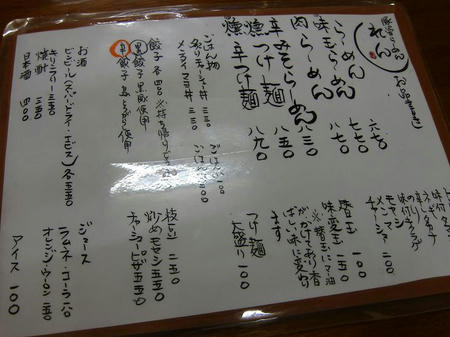 豚骨らーめん
れん
お品書き
らーめん 六七〇
味玉らーめん 七七〇
肉らーめん 八七〇
辛みそらーめん 八三〇
燻つけ麺 八五〇
燻辛つけ麺 八九〇
味付タマゴ
ネギ
味付
モヤシ
メンマ
チャーシュー
替玉 一〇〇
味変玉 一五〇
※替玉にマ油
がかけてあり香
ばしい味に変わり
ます
つけ麺
大盛り 一〇〇
ごはん物
炙りチャーシュー丼 三三〇
メンタイマヨ丼 三三〇
ごはん
餃子 各四〇〇 ※持ち帰り
黒餃子 黒豚使用
辛餃子 島とうがらし使用
枝豆 二五〇
炒めモヤシ 三五〇
チャーシューピザ 五五〇
お酒
ビール(スーパードライ・エビス) 各五五〇
キリンフリー 三五〇
焼酎 三五〇
日本酒 四〇〇
ジュース
ラムネ・コーラ
オレンジ・ウーロン 一五〇
アイス 一〇〇